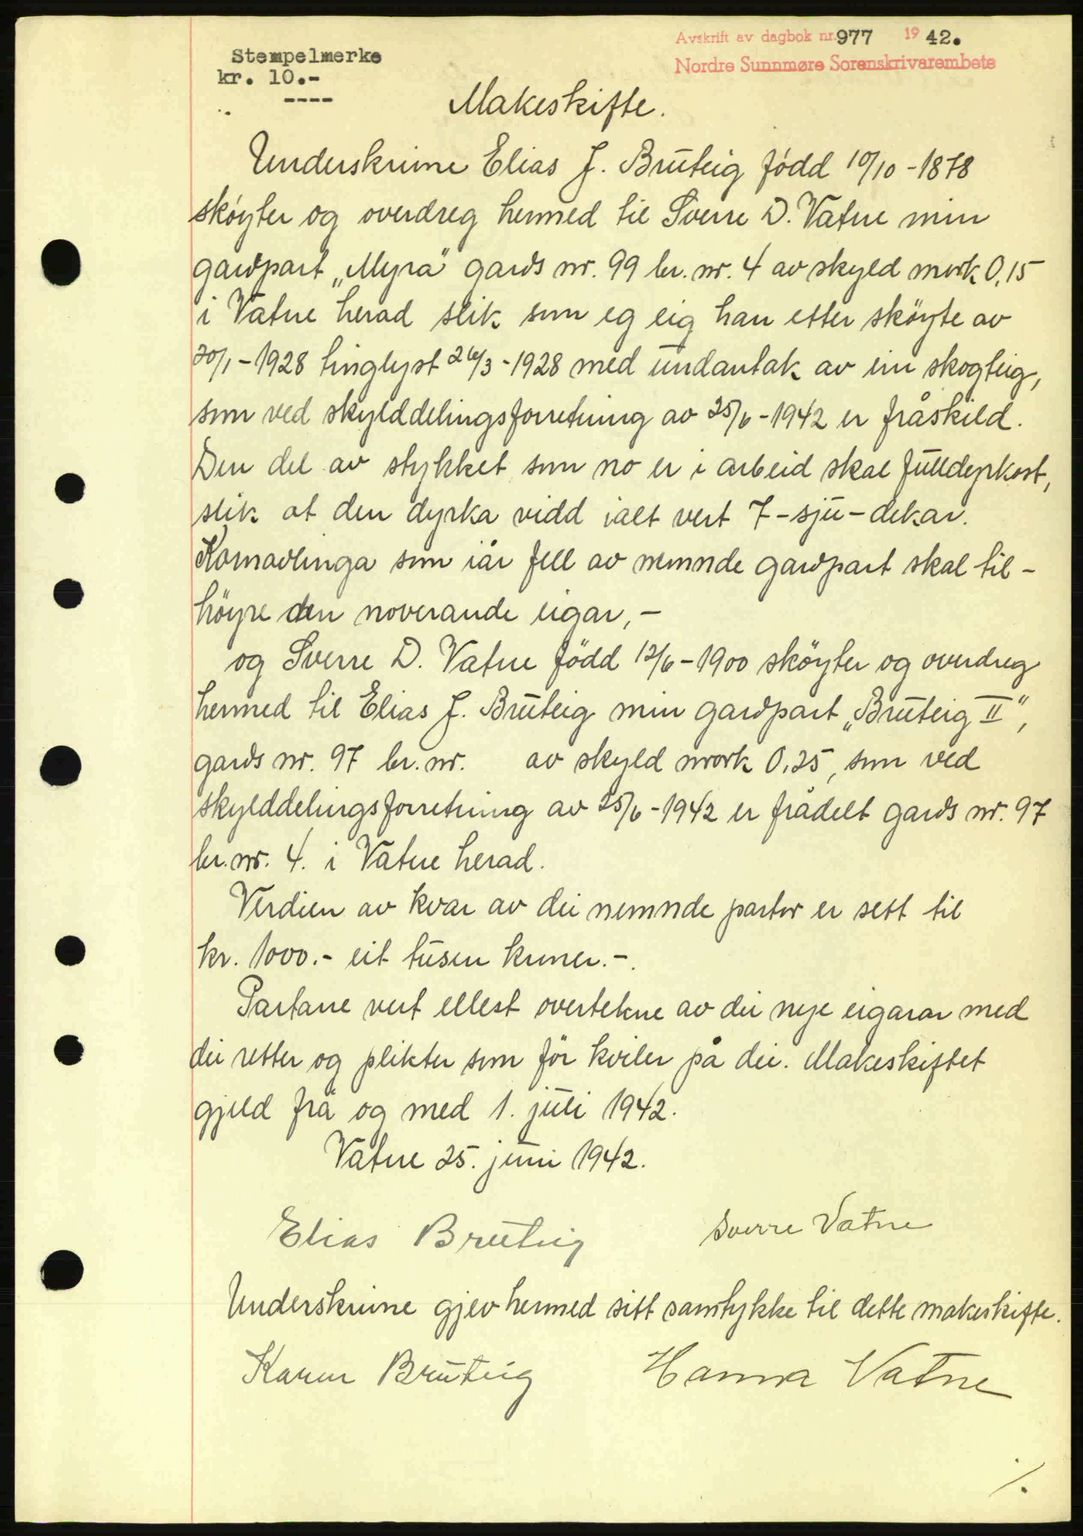 Avskrift av dagbok nr. 977 1942.
Nordre Sunnmøre Sorenskrivarembete
Stempelmerke
kr. 10.-
----
Makeskifte.
Underskrivne Elias J. Bruteig fødd 10/10-1878
skøyter og overdreg hermed til Sverre D. Vatne min
gardpart „Myra" gards nr. 99 br. nr. 4 av skyld mork 0,15
i Vatne herad slik som eg eig han etter skøyte av
20/1-1928 tinglyst 26/3-1928 med undantak av ein skogteig,
som ved skylddelingsforretning av 25/6-1942 er fråskild.
Den del av stykket som no er i arbeid skal fulldyrkast,
slik at den dyrka vidd ialt vert 7-sju-dekar.
Kornavlinga som iår fell av nemnde gardpart skal til-
høyre den noverande eigar,-
og Sverre D. Vatne fødd 12/6-1900 skøyter og overdreg
hermed til Elias J. Bruteig min gardpart „Bruteig II",
gards nr. 97 br. nr. av skyld mork 0,25, som ved
skylddelingsforretning av 25/6-1942 er frådelt gards nr. 97
br. nr. 4. i Vatne herad.
Verdien av kvar av dei nemnde partar er sett til
kr. 1000.- eit tusen kroner.-.
Partane vert ellest overtekne av dei nye eigarar med
dei retter og plikter som før kviler på dei. Makeskiftet
gjeld frå og med 1. juli 1942.
Vatne 25. juni 1942.
Elias Bruteig Sverre Vatne
Underskrivne gjev hermed sitt samtykke til dette makeskifte.
Karen Bruteig Hanna Vatne
./.